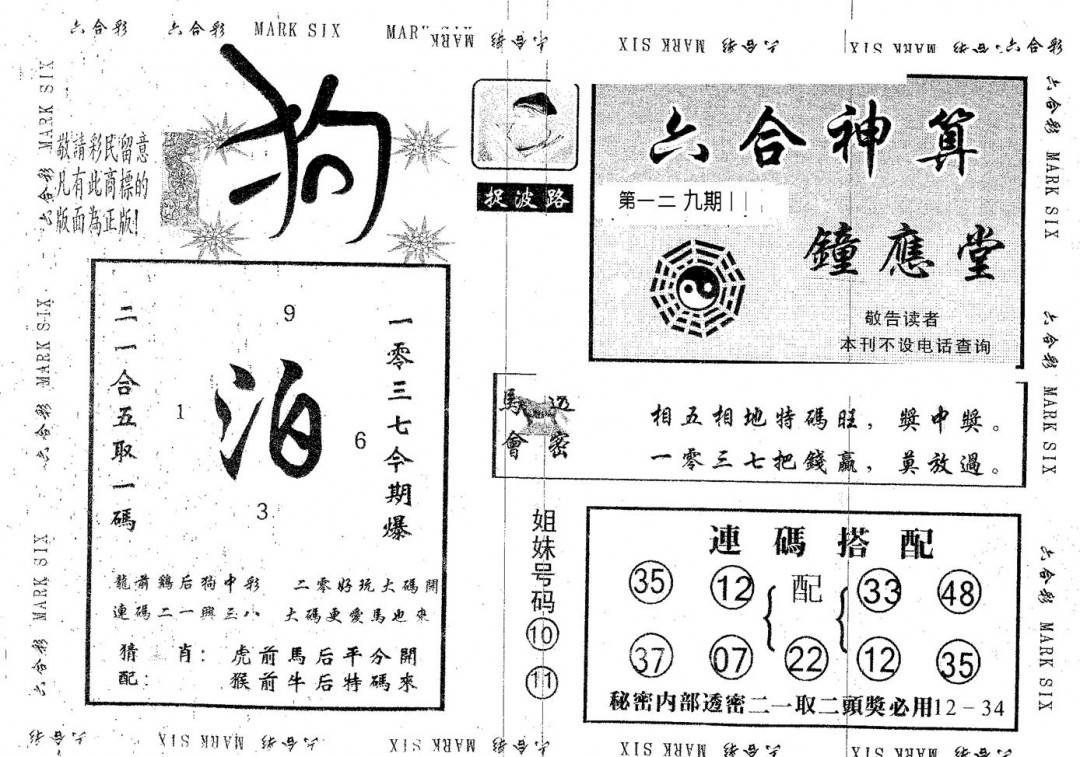 六合彩 六合彩 MARK SIX MAR MARK 六合彩 MARK SIX 六合彩 MARK SIX 六合彩 六合彩
六合彩 MARK SIX 六合彩 MARK SIX 六合彩 MARK SIX
敬請彩民留意
凡有此商標的
版面為正版!
狗
捉波路
六合神算
第一二九期
鐘應堂
敬告读者
本刊不设电话查询
一零三七今期爆
二一合五取一碼
9
1
泊
6
3
龍前鷄后狗中彩 二零好玩大碼開
連碼二一興三八 大碼更愛馬也來
猜 肖: 虎前馬后平分開
配: 猴前牛后特碼來
馬會透密
相五相地特碼旺,獎中獎。
一零三七把錢贏,莫放過。
姐妹号码
10
11
連碼搭配
35 12 配 33 48
37 07 22 12 35
秘密内部透密二一取二頭獎必用12-34
六合彩 MARK SIX 六合彩 MARK SIX 六合彩 MARK SIX
六合彩 MARK SIX 六合彩 MARK SIX 六合彩 MARK SIX 六合彩 MARK SIX 六合彩